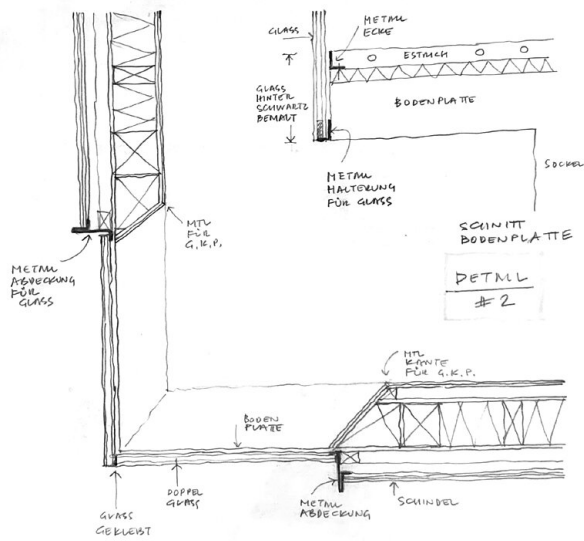 GLASS
METALL
ECKE
ESTRICH
GLASS
HINTER
SCHWARTZ
BEMALT
BODENPLATTE
SOCKEL
METALL
HALTERUNG
FÜR GLASS
SCHNITT
BODENPLATTE
DETAIL
#2
MTL
FÜR
G.K.P.
METALL
ABDECKUNG
FÜR
GLASS
MTL
KANTE
FÜR G.K.P.
BODEN
PLATTE
GLASS
GEKLEBT
DOPPEL
GLASS
METALL
ABDECKUNG
SCHINDEL